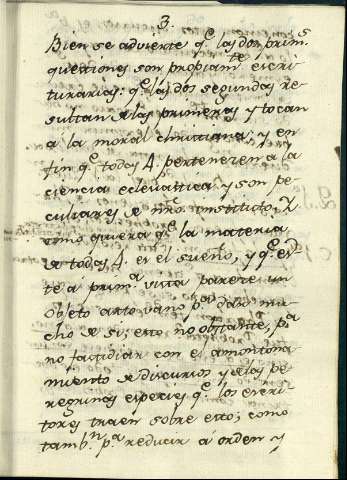 3.
Bien se advierte q.e las dos prim.s
questiones son propiam.te escri-
turarias: q.e las dos segundas re-
sultan de las primeras y tocan
a la moral christiana; y en
fin q.e todas 4. pertenecen a la
ciencia eclesiastica y son pe-
culiares de nro. instituto. Y
como quiera q.e la materia
de todas 4. es el sueño, y q.e es-
te a prim.a vista parece un
objeto arto vano p.a dar mu-
cho de si; esto no obstante, p.a
no fastidiar con el amontona-
miento de discursos y de las pe-
regrinas especies q.e los escri-
tores traen sobre esto; como
tamb.n p.a reducir á orden y